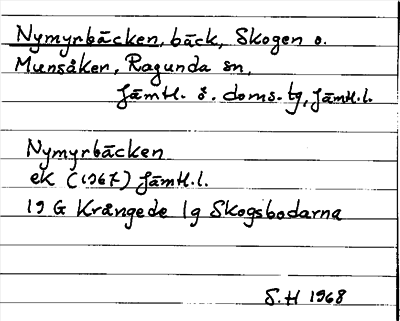 Nymyrbäcken, bäck, Skogen o.
Munsåker, Ragunda sn,
Jämtl. ö. doms. tg, Jämtl.l.
Nymyrbäcken
ek (1967) Jämtl.l.
19 G Krångede 1g Skogsbodarna
S.H 1968